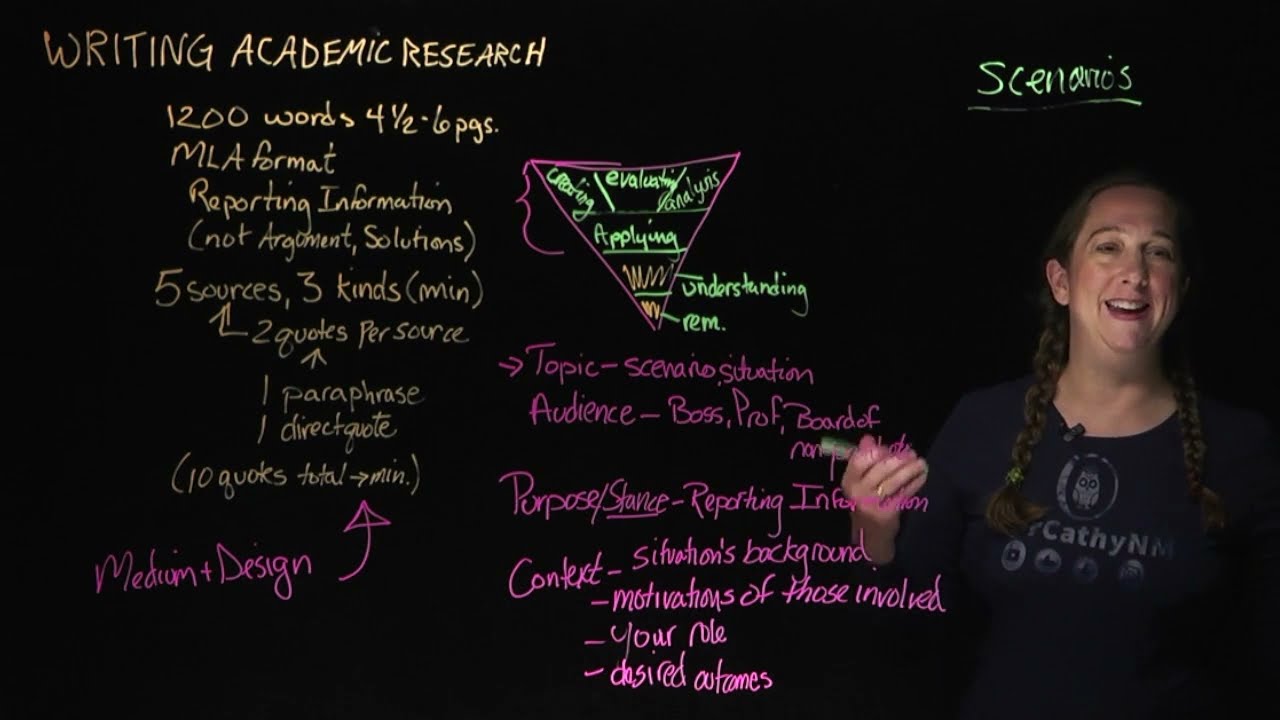 WRITING ACADEMIC RESEARCH
1200 words 4 ½ - 6 pgs.
MLA format
Reporting Information
(not Argument, Solutions)
5 sources, 3 kinds (min)
2 quotes per source
1 paraphrase
1 direct quote
(10 quotes total → min.)
Medium + Design
creating
evaluating
analysis
Applying
understanding
rem.
→ Topic - scenario, situation
Audience - Boss, Prof, Board of
Purpose/Stance - Reporting Information
Context - situation's background
- motivations of those involved
- your role
- desired outcomes
Scenarios
CathyNM